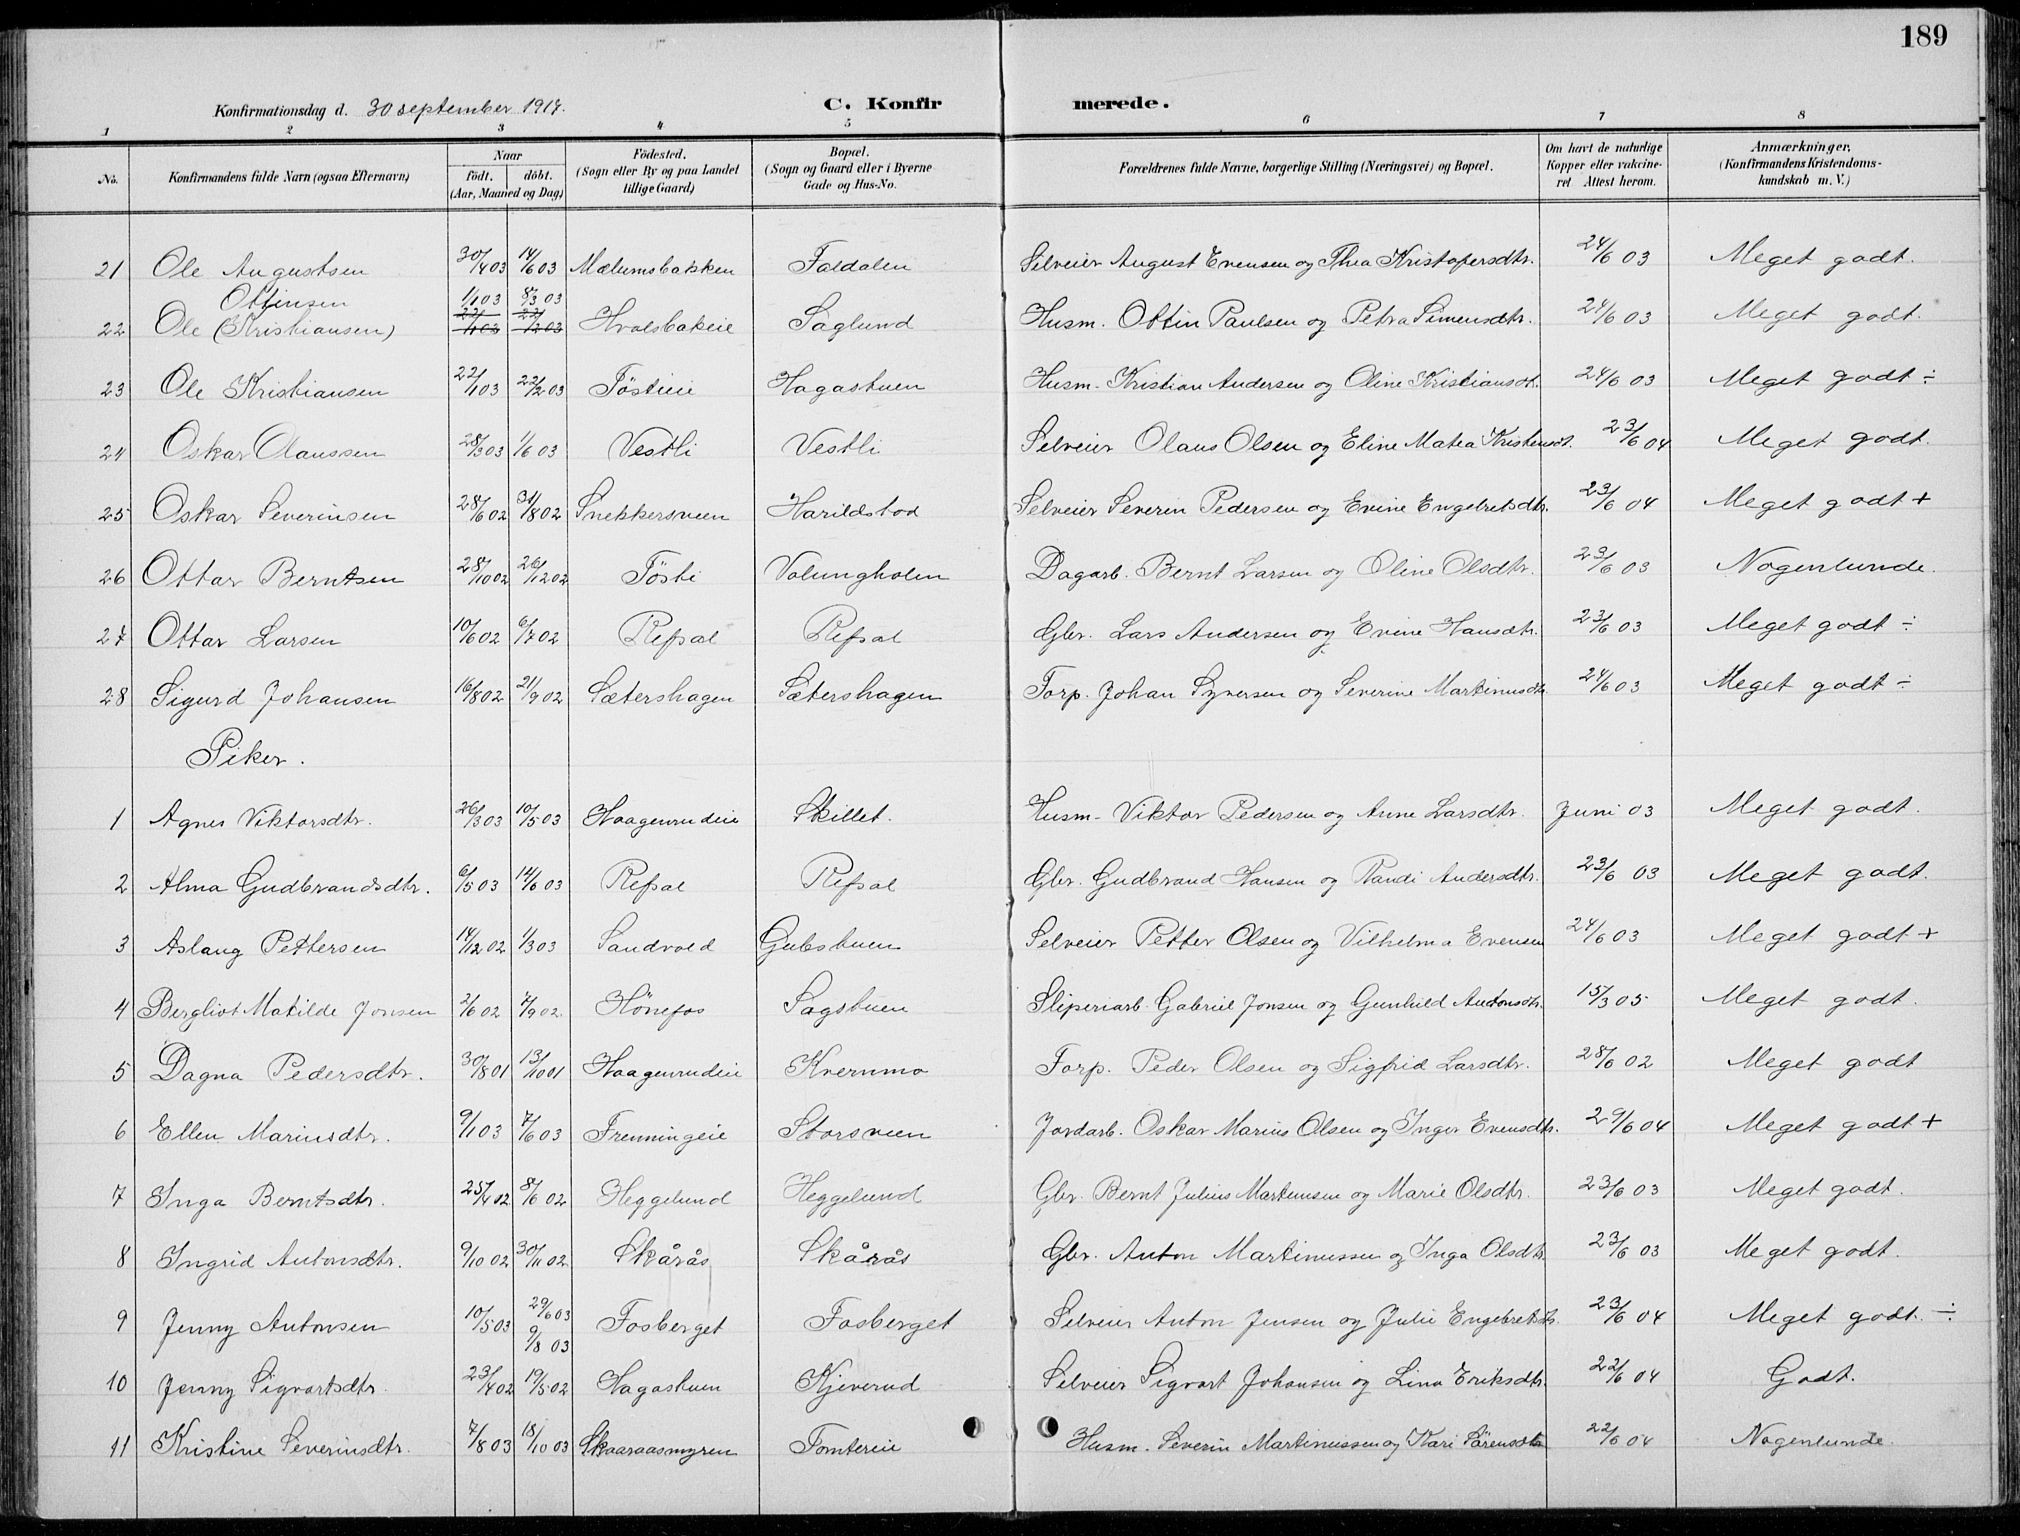 189
Konfirmationsdag d. 30 september 1917. C. Konfirmerede.
1 2 3 4 5 6 7 8
No. Konfirmandens fulde Navn (ogsaa Efternavn) Naar født. døbt. (Aar, Maaned og Dag) Fødested. (Sogn eller By og paa Landet tillige Gaard) Bopæl. (Sogn og Gaard eller i Byerne Gade og Hus-No. Forældrenes fulde Navne, borgerlige Stilling (Næringsvei) og Bopæl. Om havt de naturlige Kopper eller vakcineret Attest herom. Anmærkninger. (Konfirmandens Kristendomskundskab m. V.)
21 Ole Augustsen 30/4 03 14/6 03 Mælumsbakken Faldalen Selveier August Evensen og Thea Kristofersdtr. 24/6 03 Meget godt.
Ottinsen 1/1 03 8/3 03
22 Ole (Kristiansen) 22/1 03 22/2 03 Hvalsbakeie Saglund Husm. Ottin Paulsen og Petra Simensdtr. 24/6 03 Meget godt.
23 Ole Kristiansen 22/1 03 22/2 03 Tøstieie Hagastuen Husm. Kristian Andersen og Oline Kristiansdt. 24/6 03 Meget godt ÷
24 Oskar Olaussen 28/3 03 1/6 03 Vestli Vestli Selveier Olaus Olsen og Eline Matea Kristensdt. 23/6 04 Meget godt
25 Oskar Severinsen 28/6 02 31/8 02 Snekkersveen Harildstad Selveier Severin Pedersen og Evine Engebretsdtr. 23/6 04 Meget godt +
26 Ottar Berntsen 28/10 02 26/12 02 Tøsti Volungholen Dagarb. Bernt Larsen og Oline Olsdtr. 23/6 03 Nogenlunde.
27 Ottar Larsen 10/6 02 6/7 02 Refsal Refsal Gbr. Lars Andersen og Evine Hansdtr. 23/6 03 Meget godt ÷
28 Sigurd Johansen 16/8 02 21/9 02 Sætershagen Sætershagen Torp. Johan Syversen og Severine Martinusdtr 24/6 03 Meget godt ÷
Piker.
1 Agnes Viktorsdtr. 26/3 03 10/5 03 Haagenrudeie Skillet. Husm. Viktor Pedersen og Anne Larsdtr. Juni 03 Meget godt.
2 Alma Gudbrandsdtr. 6/5 03 14/6 03 Refsal Refsal Gbr. Gudbrand Hansen og Randi Andersdtr. 23/6 03 Meget godt.
3 Aslaug Pettersen 14/12 02 1/3 03 Sandvold Gubstuen Selveier Petter Olsen og Vilhelma Evensen 24/6 03 Meget godt +
4 Bergliot Matilde Jonsen 2/6 02 7/9 02. Hønefos Sagstuen Sliperiarb. Gabriel Jonsen og Gunhild Antonsdtr. 15/3 05 Meget godt.
5 Dagna Pedersdtr. 30/8 01 13/10 01 Haagenrudeie Kvernmo Torp. Peder Olsen og Sigfrid Larsdtr. 28/6 02 Meget godt
6 Ellen Mariusdtr. 9/1 03 7/6 03 Frenningeie Storsveen Jordarb. Oskar Marius Olsen og Inger Evensdtr. 29/6 04 Meget godt +
7 Inga Berntsdtr. 25/4 02 8/6 02 Heggelund Heggelund Gbr. Bernt Julius Martinsen og Marie Olsdtr. 23/6 03 Meget godt.
8 Ingrid Antonsdtr. 9/10 02 30/11 02 Skårås Skårås Gbr. Anton Martinussen og Inga Olsdtr. 23/6 03 Meget godt.
9 Jenny Antonsen 10/5 03 29/6 03 9/8 03 Fosberget Fosberget Selveier Anton Jensen og Julie Engebretsdtr. 23/6 04 Meget godt. ÷
10 Jenny Sigvartsdtr. 23/4 02 19/5 02 Hagastuen Kjeverud Selveier Sigvart Johansen og Lina Eriksdtr. 22/6 04 Godt.
11 Kristine Severinsdtr. 7/8 03 18/10 03 Skaaraasmyren Tomtereie Husm. Severin Martinussen og Kari Sørensdtr 22/6 04 Nogenlunde.